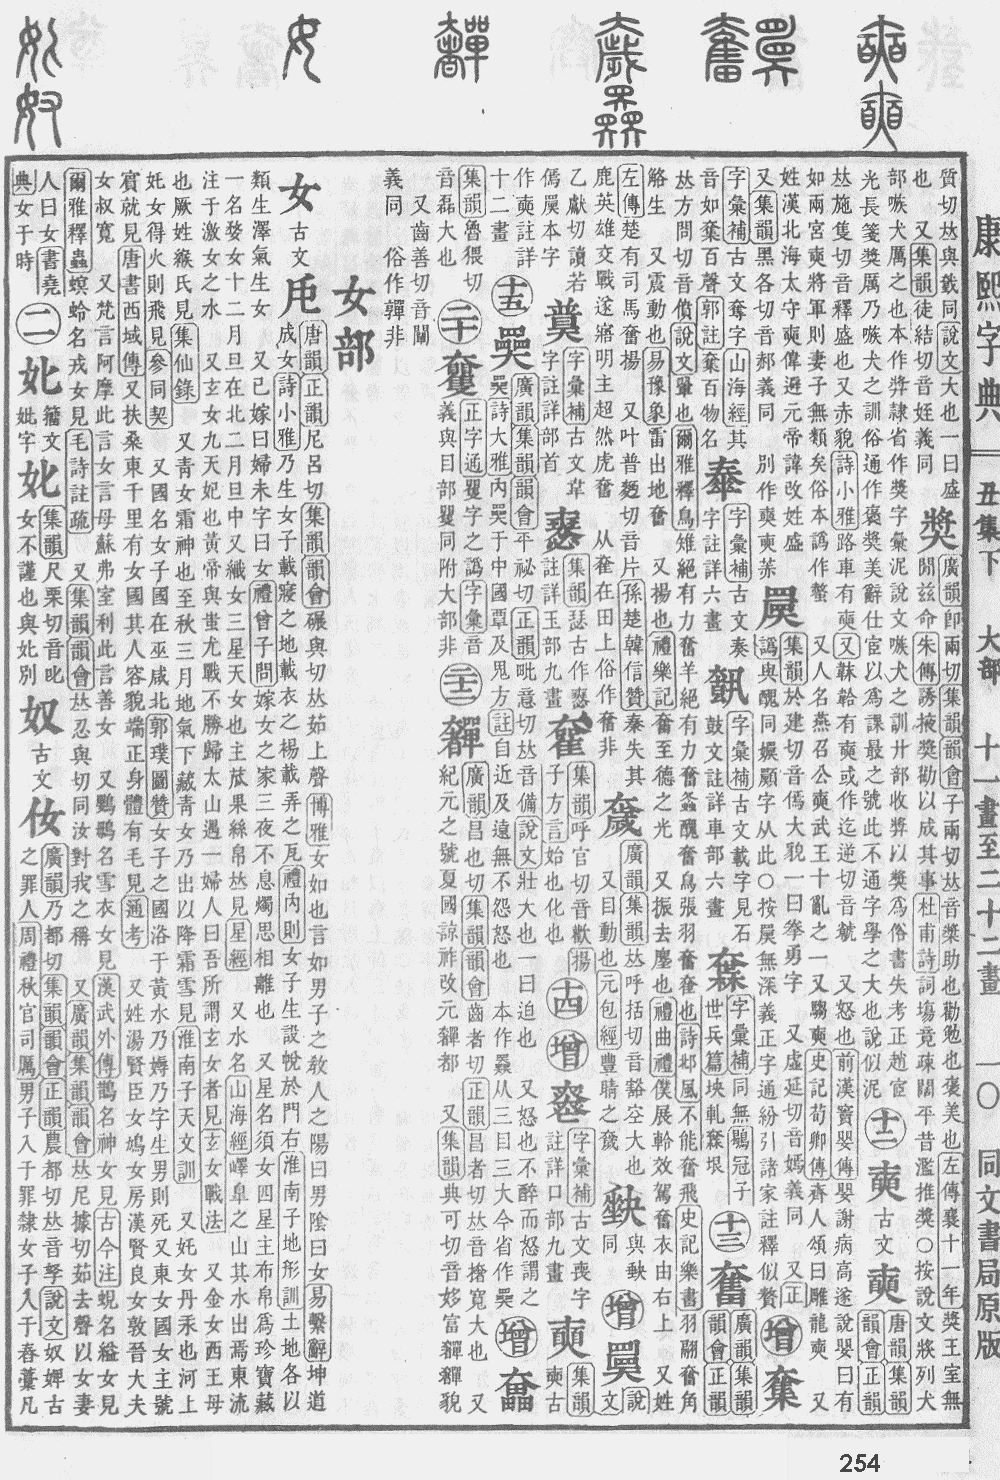 康熙字典 丑集下 大部 十一畫至二十二畫 一〇 同文書局原版
質切𠀤與㪤同說文大也一曰盛
也 又集韻徒結切音姪義同
奬
廣韻卽兩切集韻韻會子兩切𠀤音槳助也勸勉也褒美也左傳襄十一年奬王室無
閒茲命朱傳誘掖奬勸以成其事杜甫詩詞場竟疎闊平昔濫推奬〇按說文將列犬
部嗾犬厲之也本作將隷省作奬字彙泥說文嗾犬之訓廾部收弊以奬爲俗書失考正趙宧
光長箋奬厲乃嗾犬之訓俗通作褒奬美辭仕宦以爲課最之號此不通字學之大也說似泥
十二
奭
古文
奭
唐韻集韻
韻會正韻
𠀤施隻切音釋盛也又赤貌詩小雅路車有奭 又怒也前漢竇嬰傳嬰謝病高遂說嬰曰有
如兩宮奭將軍則妻子無類矣俗本譌作螫 又人名燕召公奭武王十亂之一又騶奭史記荀卿傳齊人頌曰雕龍奭 又
姓漢北海太守奭偉避元帝諱改姓盛
又集韻黑各切音郝義同 別作奭
集韻於建切音傿大貌一曰拳勇字 又虛延切音嫣義同
增
奪
字彙補古文奪字山海經其
音如奪百聲郭註奪百物名
字彙補古文奏
字註詳六畫
字彙補古文載字見石
鼓文註詳車部六畫
字彙補同無鶡冠子
世兵篇坱軋無垠
十三
奮
廣韻集韻
韻會正韻
𠀤方問切音僨說文翬也爾雅釋鳥雉絕有力奮羊絕有力奮
又震動也易豫象雷出地奮 又揚也禮樂記奮至德之光 又振去塵也禮曲禮僕展軨效駕奮衣由右上 又姓
左傳楚有司馬奮揚 又叶普麪切音片孫楚韓信贊秦失其
鹿英雄交戰遂寤明主超然虎奮 从奞在田上俗作奮非
廣韻集韻𠀤呼括切音豁空大也
又目動也元包經豐睛之
同與
增
說
文
乙獻切讀若
傿屟本字
字彙補古文
字註詳部首
集韻瑟古作
註詳玉部九畫
集韻呼官切音歡揚
子方言始也化也
十四
增
字彙補古文喪字
註詳口部九畫
奭
集韻
奭古
作奭註詳
十二畫
十五
奰
廣韻集韻韻會平祕切正韻毗意切𠀤音備說文壯大也一曰迫也 又怒也不醉而怒謂之
奰詩大雅內奰于中國覃及鬼方註自近及遠無不怨怒也 本作奰从三目三大今省作奰
增
奲
集韻魯猥切
音磊大也
二十
正字通字之譌字彙音
義與目部同附大部非
二十二
奲
廣韻昌也切集韻韻會齒者切正韻昌者切𠀤音撦寬大也 又
紀元之號夏國諒祚改元奲都 又集韻典可切音哆富奲奲貌
又齒善切音闡
義同 俗作奲非
女部
女
古文
唐韻正韻尼呂切集韻韻會碾與切𠀤茹上聲博雅女如也言如男子之敎人之陽曰男陰曰女易繫辭坤道
成女詩小雅乃生女子載寢之地載衣之裼載弄之瓦禮內則女子生設帨於門右淮南子地形訓土地各以
類生澤氣生女 又已嫁曰婦未字曰女禮曾子問嫁女之家三夜不息燭思相離也 又星名須女四星主布帛爲珍寶藏
一名婺女十二月旦在北二月旦中又織女三星天女也主苽果絲帛𠀤見星經 又水名山海經嶧阜之山其水出焉東流
注于激女之水 又玄女九天妃也黃帝與蚩尤戰不勝歸太山遇一婦人曰吾所謂玄女者見玄女戰法 又金女西王母
也厥姓緱氏見集仙錄 又靑女霜神也至秋三月地氣下藏靑女乃出以降霜雪見淮南子天文訓 又奼女丹汞也河上
奼女得火則飛見參同契 又國名女子國在巫咸北郭璞圖贊女子之國浴于黃水乃娠乃字生男則死又東女國女主號
賓就見唐書西域傳又扶桑東千里有女國其人容貌端正身體有毛見通考 又姓湯賢臣女鳩女房漢賢良女敦晉大夫
女叔寬 又梵言阿摩此言女言母蘇弗室利此言善女 又鸚䳇名雪衣女見漢武外傳鵲名神女見古今注蜆名縊女見
爾雅釋蟲螟蛉名戎女見毛詩註疏 又集韻韻會𠀤忍與切同汝對我之稱 又廣韻集韻韻會𠀤尼據切茹去聲以女妻
人曰女書堯
典女于時
二
籀文
妣字
集韻尺栗切音叱
女不謹也與別
奴
古文
㚢
廣韻乃都切集韻韻會正韻農都切𠀤音孥說文奴婢古
之罪人周禮秋官司厲男子入于罪隷女子入于舂藁凡
254